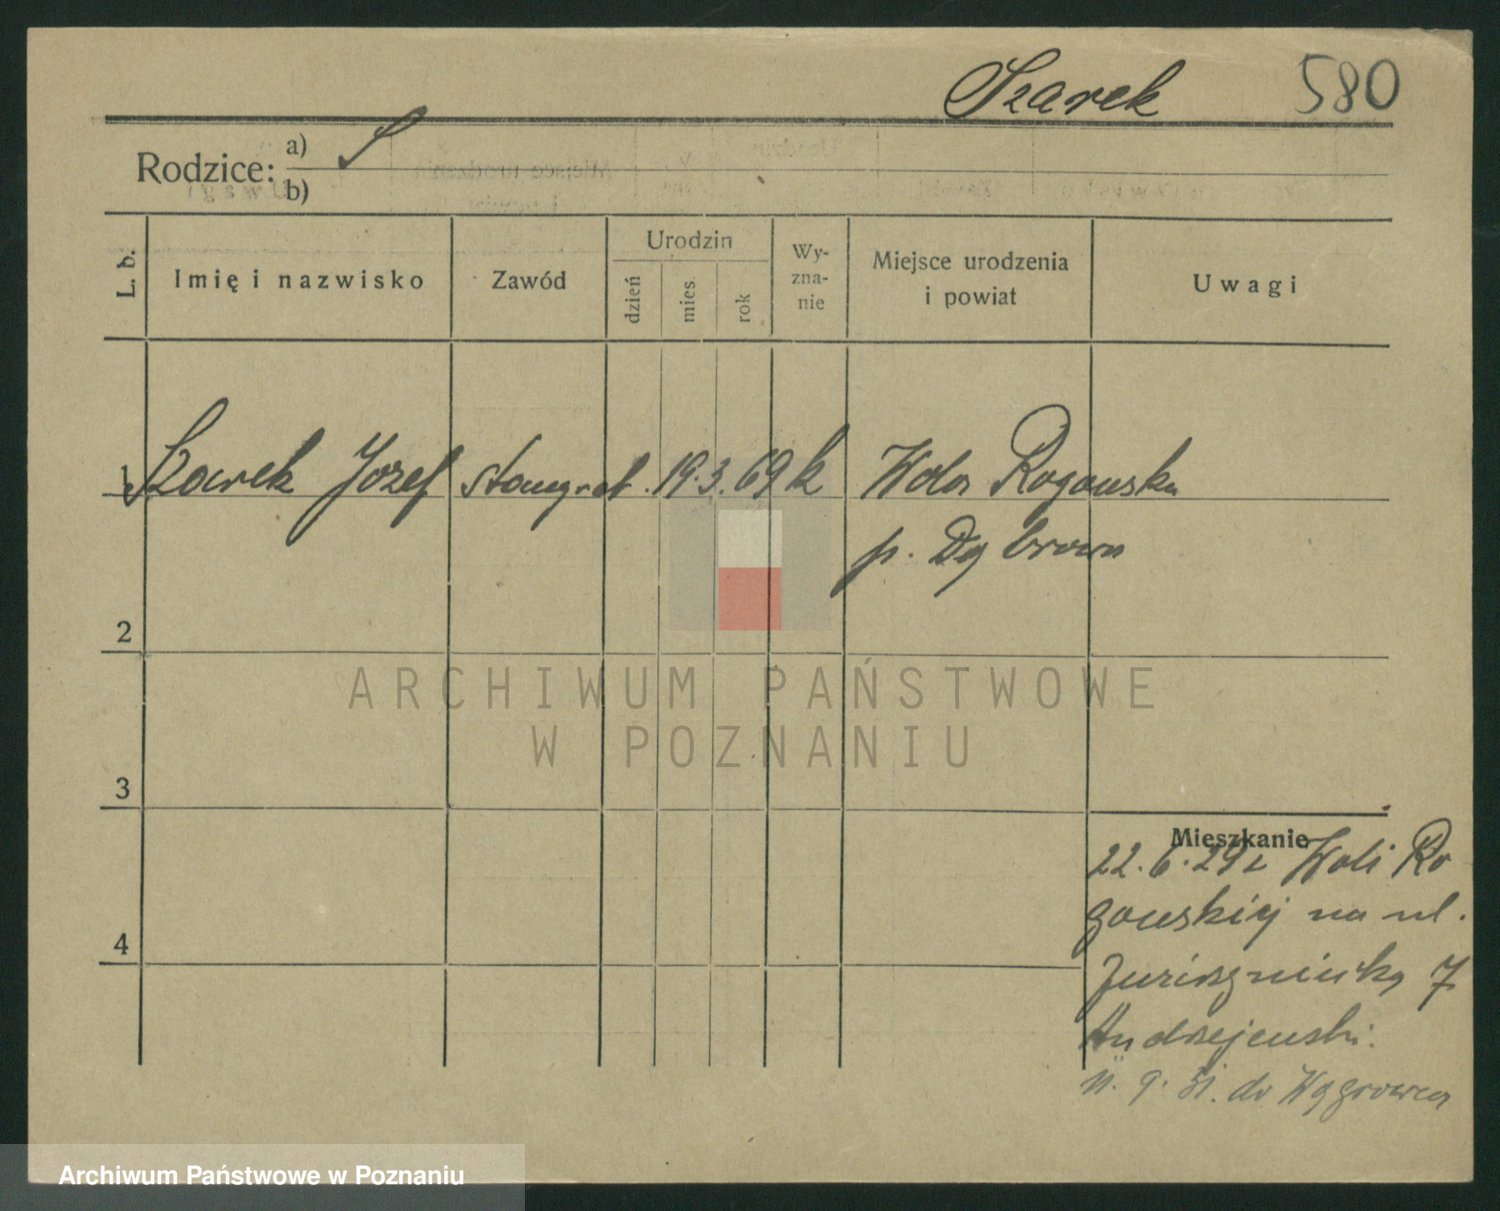 Szarek 580
Rodzice: a)
b)
L. b. Imię i nazwisko Zawód Urodzin dzień mies. rok Wy-zna-nie Miejsce urodzenia i powiat Uwagi
1 Szarek Jozef 19. 3. 69 k Wola Rogowska
p. Dąbrowa
2
3
4
Mieszkanie
22. 6. 29 z Woli Ro
gowskiej na ul.
7
Andrzejewski.
11. 9. 31. do Wągrowca
ARCHIWUM PAŃSTWOWE
W POZNANIU
Archiwum Państwowe w Poznaniu